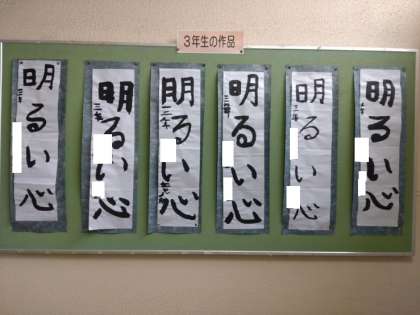 3年生の作品
明るい心
三年
明るい心
三年
明るい心
三年
明るい心
三年
明るい心
三年
明るい心